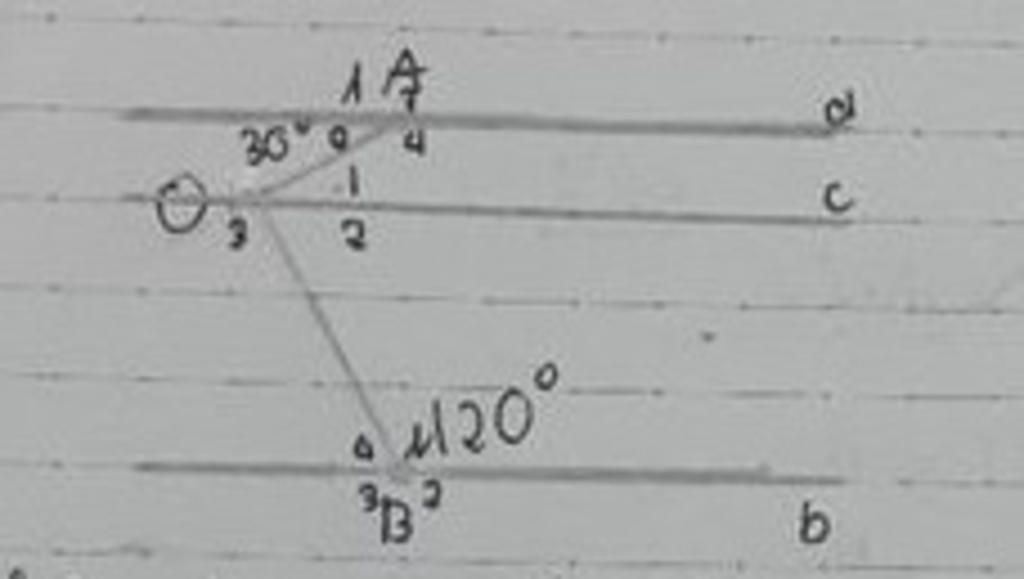 1 A
a
30° 2 4
1
c
O
3 2
4 120°
3 B 2
b